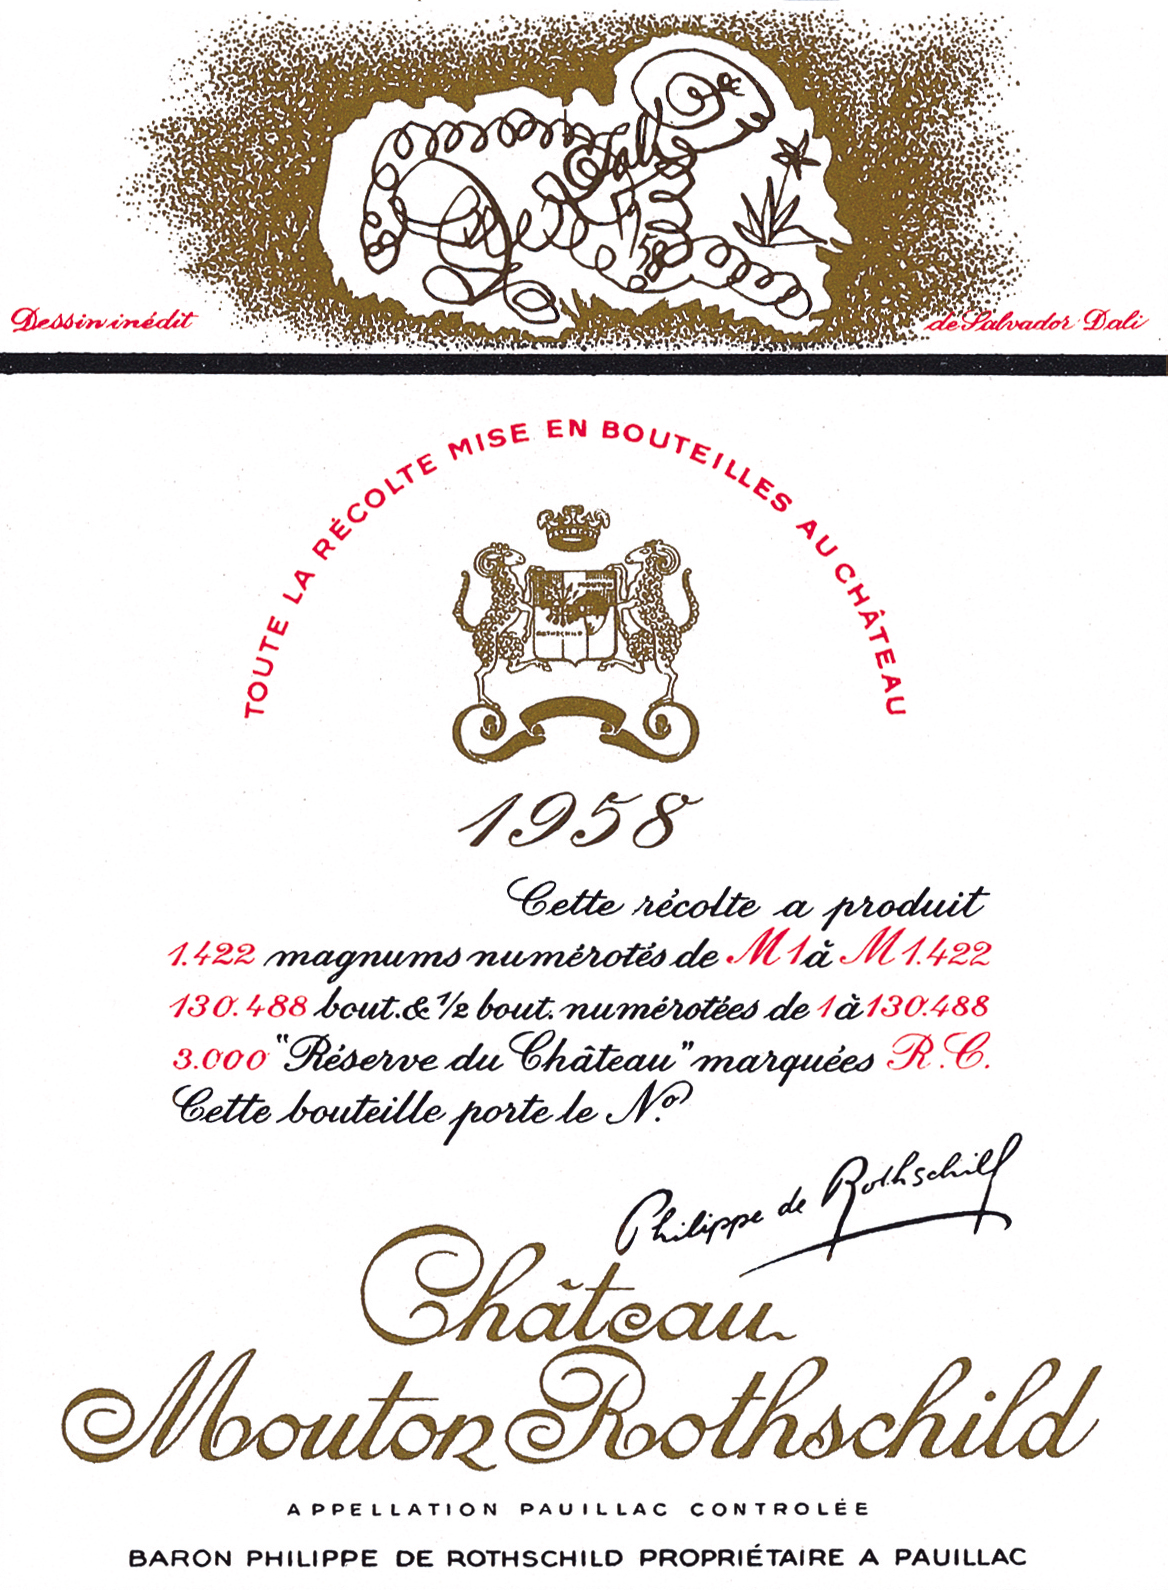 Dali
1958
Dessin inédit
de Salvador Dali
TOUTE LA RÉCOLTE MISE EN BOUTEILLES AU CHÂTEAU
MOUTON
ROTHSCHILD
1958
Cette récolte a produit
1.422 magnums numérotés de M 1 à M 1.422
130.488 bout. & 1/2 bout. numérotées de 1 à 130.488
3.000 "Réserve du Château" marquées R.C.
Cette bouteille porte le No.
Philippe de Rothschild
Château
Mouton Rothschild
APPELLATION PAUILLAC CONTROLÉE
BARON PHILIPPE DE ROTHSCHILD PROPRIÉTAIRE A PAUILLAC